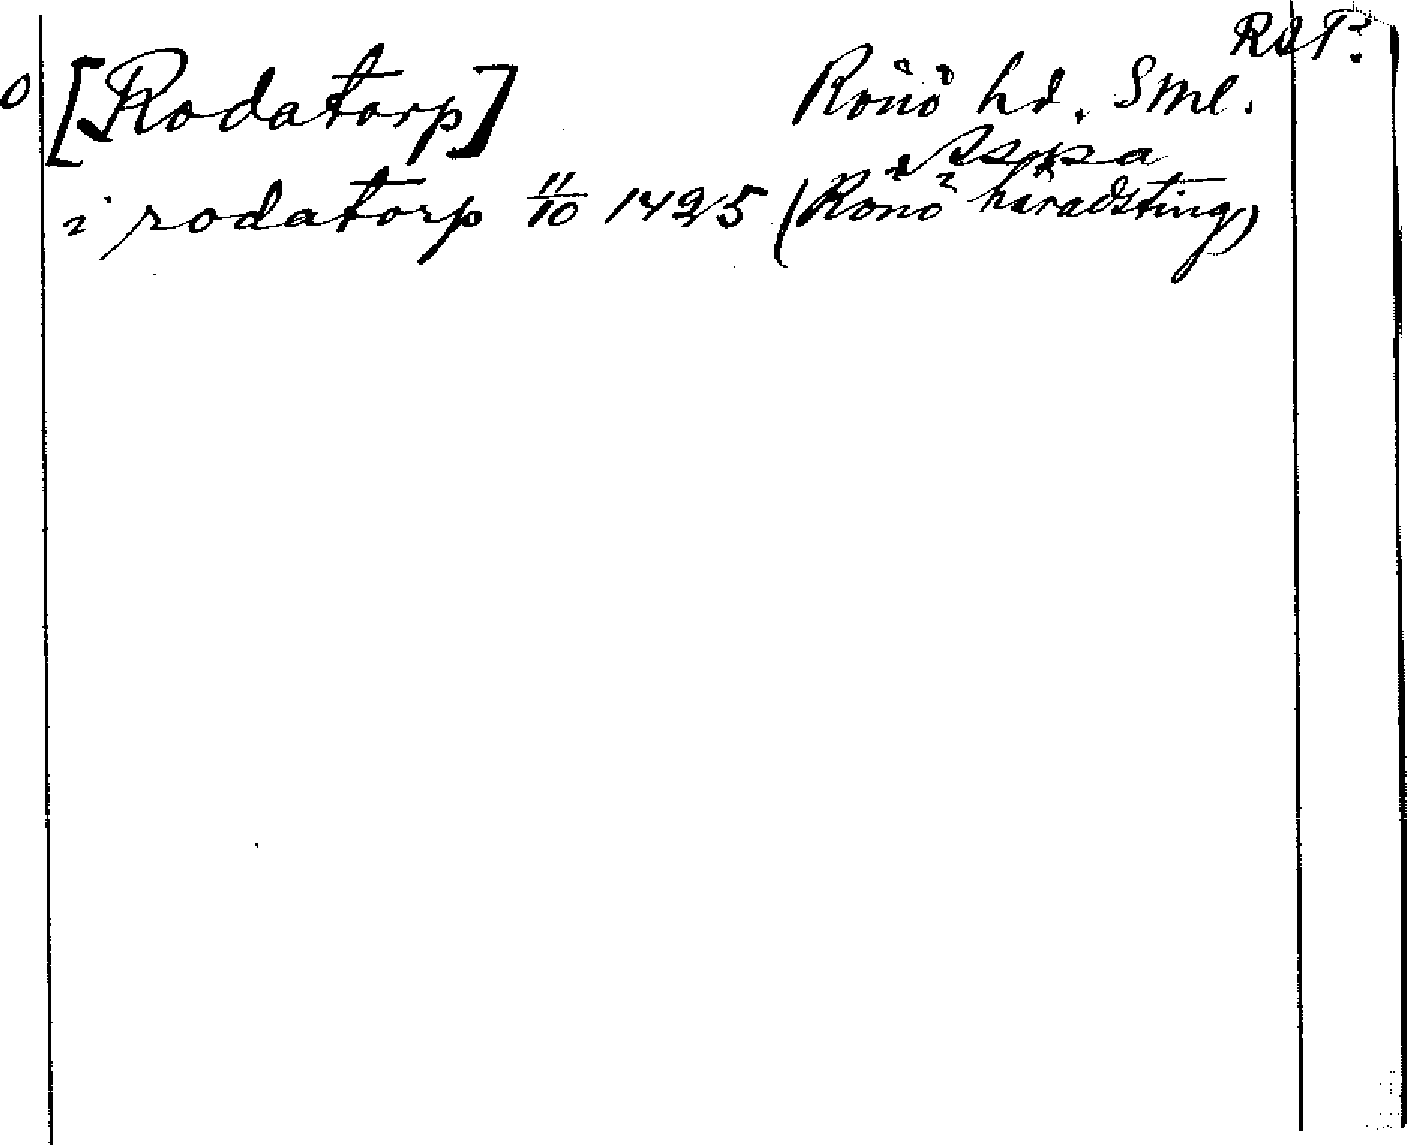 RAP.
0 [Rodatorp] Rönö hd. Sml.
i Aspa
i rodatorp 11/10 1425 (Rönö häradsting)